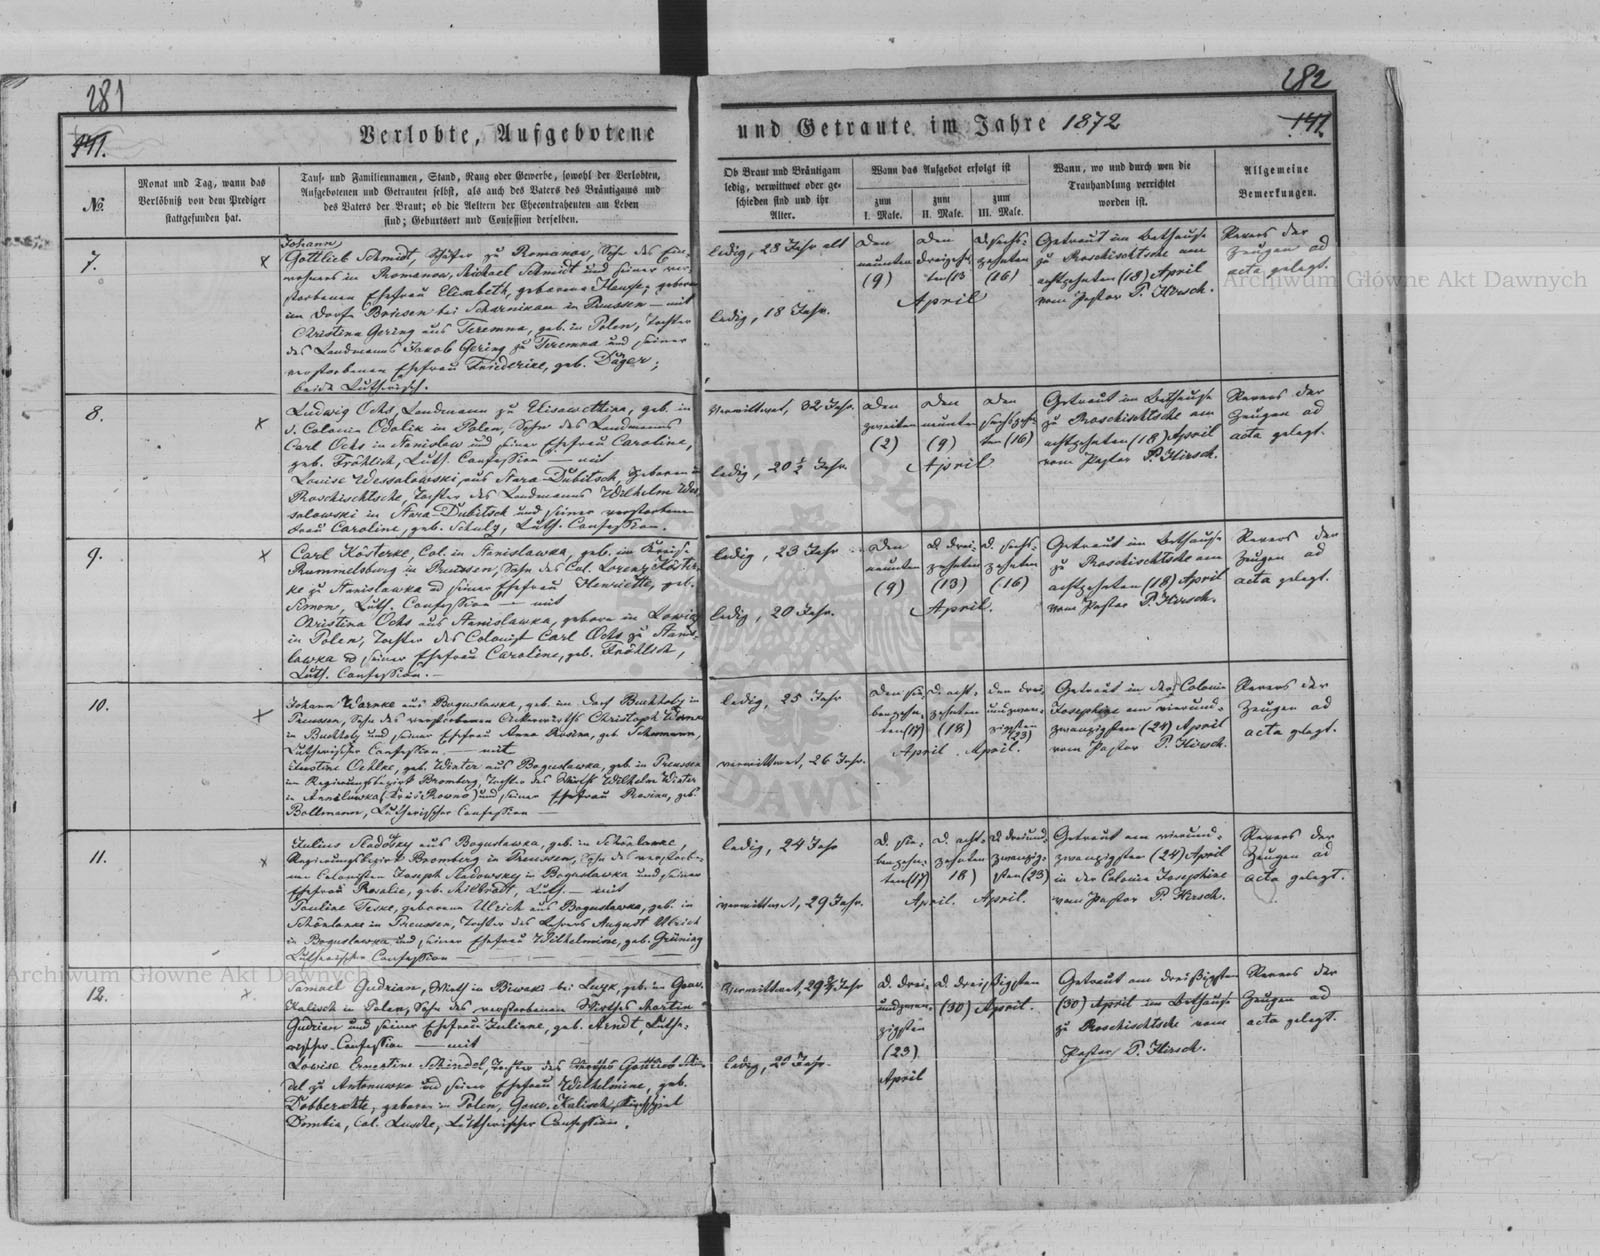 281
282
141.
Verlobte, Aufgebotene
und Getraute im Jahre 1872
141.
№.
Monat und Tag, wann das
Verlöbniß von dem Prediger
stattgefunden hat.
Tauf- und Familiennamen, Stand, Rang oder Gewerbe, sowohl der Verlobten,
Aufgebotenen und Getrauten selbst, als auch des Vaters des Bräutigams und
des Vaters der Braut; ob die Aeltern der Ehecontrahenten am Leben
sind; Geburtsort und Confession derselben.
Ob Braut und Bräutigam
ledig, verwittwet oder ge-
schieden sind und ihr
Alter.
Wann das Aufgebot erfolgt ist
zum
I. Male.
zum
II. Male.
zum
III. Male.
Wann, wo und durch wen die
Trauhandlung verrichtet
worden ist.
Allgemeine
Bemerkungen.
7.
x
Johann
Gottlieb Schmidt, Schäfer zu Romanow, Sohn des Ein-
wohners in Romanow, Michael Schmidt und seiner ver-
storbenen Ehefrau Elisabeth, geborene; geboren
im Dorf Briesen bei Scharnikau in Preussen — mit
Christina Gering aus Teremna, geb. in Polen, Tochter
des Landmanns Jakob Gering zu Teremna und seiner
verstorbenen Ehefrau Friederike, geb. Däger;
beide Lutherisch.
ledig, 28 Jahr alt
ledig, 18 Jahr.
den
neunten
(9)
den
dreizehn-
ten (13
d. sechs-
zehnten
(16)
April
Getraut im Bethause
zu Roschischtsche am
achtzehnten (18) April
vom Pastor P. Hirsch.
Revers der
Zeugen ad
acta gelegt.
8.
x
Ludwig Ochs, Landmann zu Elisawethina, geb. in
d. Colonie Odolik in Polen, Sohn des Landmanns
Carl Ochs in Stanislaw und seiner Ehefrau Caroline,
geb. Fröhlich, Luth. Confession — mit
Louise Wessolowski, aus Stara-Dubitsch, geboren in
Roschischtsche, Tochter des Landmanns Wilhelm Wes-
solowski in Stara-Dubitsch und seiner verstorbenen
Frau Caroline, geb. Schulz, Luth. Confession.
Verwittwet, 32 Jahr.
ledig, 20 ½ Jahr.
den
zweiten
(2)
den
neunten
(9)
den
sechszehn-
ten (16)
April
Getraut im Bethause
zu Roschischtsche am
achtzehnten (18) April
vom Pastor P. Hirsch.
Revers der
Zeugen ad
acta gelegt.
9.
x
Carl Kösterke, Col. in Stanislawka, geb. im Kreise
Rummelsburg in Preussen, Sohn des Col. Lorenz Köster-
ke zu Stanislawka ud seiner Ehefrau Henriette, geb.
Simon, Luth. Confession — mit
Christina Ochs aus Stanislawka, geboren in Lowicz
in Polen, Tochter des Colonist Carl Ochs zu Stanis-
lawka ud seiner Ehefrau Caroline, geb. Fröhlich,
Luth. Confession. —
ledig, 23 Jahr
ledig, 20 Jahr.
den
neunten
(9)
d. drei-
zehnten
(13)
d. sechs-
zehnten
(16)
April.
Getraut im Bethause
zu Roschischtsche am
achtzehnten (18) April
vom Pastor P. Hirsch.
Revers der
Zeugen ad
acta gelegt.
10.
x
Johann Warnke aus Boguslawka, geb. im Dorf Buchholz in
Preussen, Sohn des verstorbenen Ackerwirths Christoph Warnke
in Buchholz und seiner Ehefrau Anna Rosina, geb.
Lutherischer Confession. — mit
Justine Oehlke, geb. Winter aus Boguslawka, geb. in Preussen
im Regierungsbezirk Bromberg, Tochter des Wirths Wilhelm Winter
in (Kreis Rowno) und seiner Ehefrau Rosina, geb.
Bollmann, Lutherischer Confession —
ledig, 25 Jahr
verwittwet, 26 Jahr.
den sie-
benzehn-
ten (17)
d. acht-
zehnten
(18)
den drei-
undzwan-
zigsten
(23)
April. April.
Getraut in der Colonie
Josephine am vierund-
zwanzigsten (24) April
vom Pastor P. Hirsch.
Revers der
Zeugen ad
acta gelegt.
11.
x
Julius Sadowsky aus Boguslawka, geb. in Schönlanke,
Regierungsbezirk Bromberg in Preussen, Sohn des verstorbe-
nen Colonisten Joseph Sadowsky in Boguslawka und seiner
Ehefrau Rosalie, geb. Milbradt, Luth. — mit
Pauline Teske, geborene Ulrich aus Boguslawka, geb. in
Schönlanke in Preussen, Tochter des Lehrers August Ulrich
in Boguslawka und seiner Ehefrau Wilhelmine, geb. Grüning
Lutherischer Confession —
ledig, 24 Jahr
verwittwet, 29 Jahr.
d. sie-
benzehn-
ten (17)
d. acht-
zehnten
18)
d. dreiund-
zwanzig-
sten (23)
April. April.
Getraut am vierund-
zwanzigsten (24) April
in der Colonie Josephine
vom Pastor P. Hirsch.
Revers der
Zeugen ad
acta gelegt.
12.
x
Samuel Gudrian, Wirth in Biwaki bei Luzk, geb. im Gouv.
Kalisch in Polen, Sohn des verstorbenen Wirthes Martin
Gudrian und seiner Ehefrau Juliane, geb. Arndt, Luthe-
rischer Confession — mit
Lowise Ernestine Schindel, Tochter des Wirthes Gottlieb Schin-
del zu Antonuwka und seiner Ehefrau Wilhelmine, geb.
geboren in Polen, Gouv. Kalisch, Kirchspiel
Dombia, Col., Lutherischer Confession.
Verwittwet, 29 Jahr
ledig, 20 Jahr.
d. drei-
undzwan-
zigsten
(23)
April
d. dreißigsten
(30) April.
Getraut am dreißigsten
(30) April im Bethause
zu Roschischtsche vom
Pastor P. Hirsch.
Revers der
Zeugen ad
acta gelegt.
Archiwum Główne Akt Dawnych
Archiwum Główne Akt Dawnych